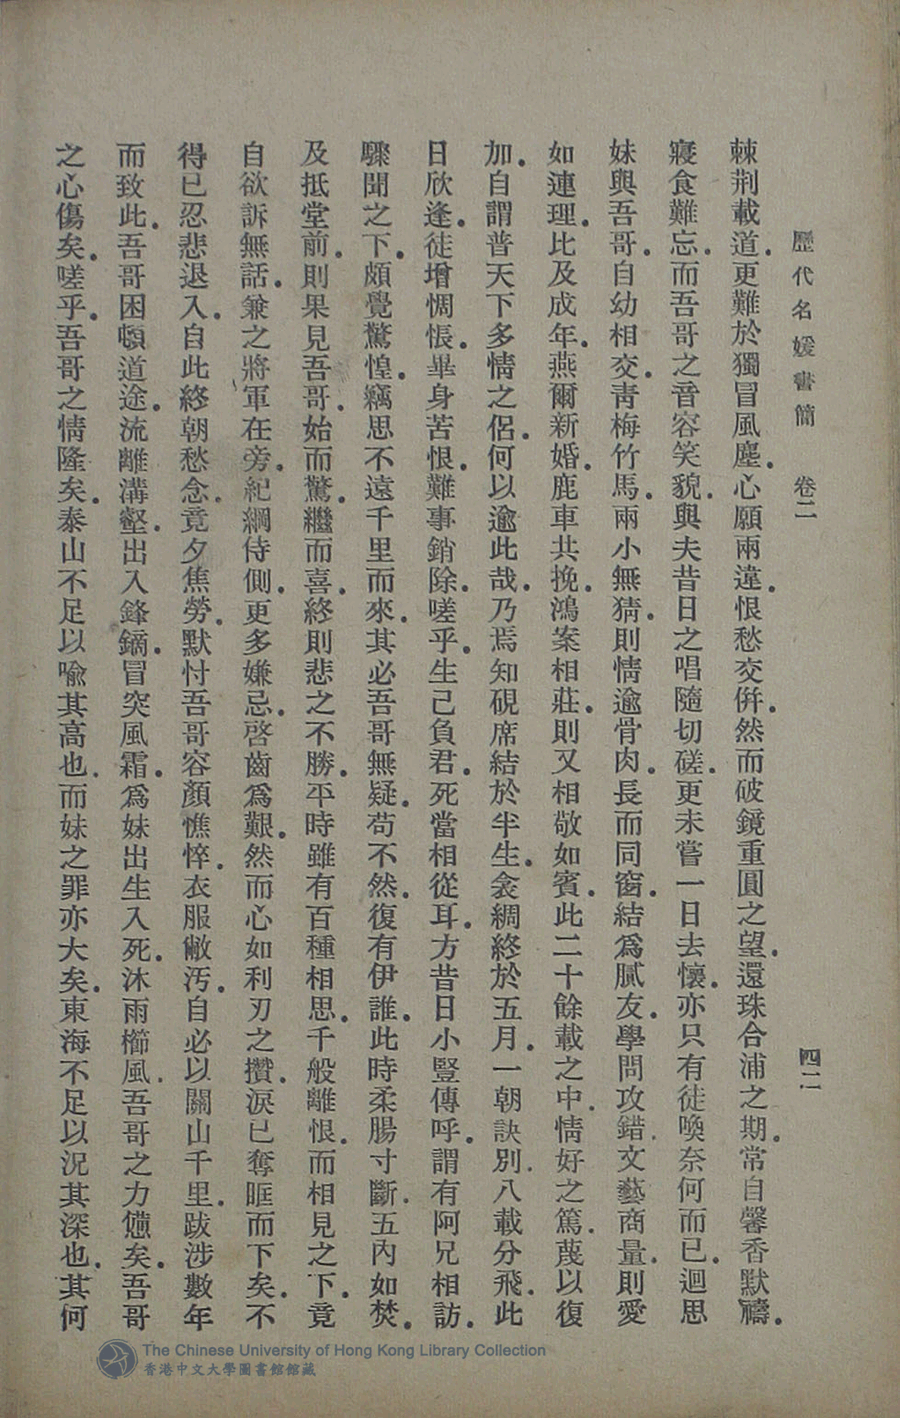 歷代名媛書簡　卷二　四二
棘荆載道。更難於獨冒風塵。心願兩違。恨愁交併。然而破鏡重圓之望。還珠合浦之期。常自馨香默禱。
寢食難忘。而吾哥之音容笑貌。與夫昔日之唱隨切磋。更未嘗一日去懷。亦只有徒喚奈何而已。迴思
妹與吾哥。自幼相交。靑梅竹馬。兩小無猜。則情逾骨肉。長而同窗。結爲膩友。學問攻錯。文藝商量。則愛
如連理。比及成年。燕爾新婚。鹿車共挽。鴻案相莊。則又相敬如賓。此二十餘載之中。情好之篤。蔑以復
加。自謂普天下多情之侶。何以逾此哉。乃焉知硯席結於半生。衾綢終於五月。一朝訣別。八載分飛。此
日欣逢。徒增惆悵。畢身苦恨。難事銷除。嗟乎。生已負君。死當相從耳。方昔日小豎傳呼。謂有阿兄相訪。
驟聞之下。頗覺驚惶。竊思不遠千里而來。其必吾哥無疑。苟不然。復有伊誰。此時柔腸寸斷。五內如焚。
及抵堂前。則果見吾哥。始而驚。繼而喜。終則悲之不勝。平時雖有百種相思。千般離恨。而相見之下。竟
自欲訴無話。兼之將軍在旁。紀綱侍側。更多嫌忌。啓齒爲艱。然而心如利刃之攢。淚已奪眶而下矣。不
得已忍悲退入。自此終朝愁念。竟夕焦勞。默忖吾哥容顏憔悴。衣服敝汚。自必以關山千里。跋涉數年
而致此。吾哥困頓道途。流離溝壑。出入鋒鏑。冒突風霜。爲妹出生入死。沐雨櫛風。吾哥之力憊矣。吾哥
之心傷矣。嗟乎。吾哥之情隆矣。泰山不足以喩其高也。而妹之罪亦大矣。東海不足以況其深也。其何
The Chinese University of Hong Kong Library Collection
香港中文大學圖書館館藏